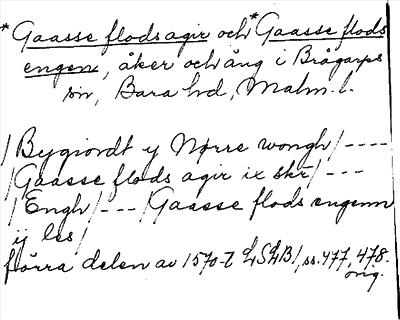 *Gaasse flods agir och *Gaasse flods
engen, åker och äng i Brågarps
sn, Bara hd, Malm. l.
/Bygiordt y Nørre wongh/----
/Gaasse flods agir ix skr/---
/Engh/---/Gaasse flods engenn
ij les/
förra delen av 1570-t LSLB1, ss. 477, 478.
orig.